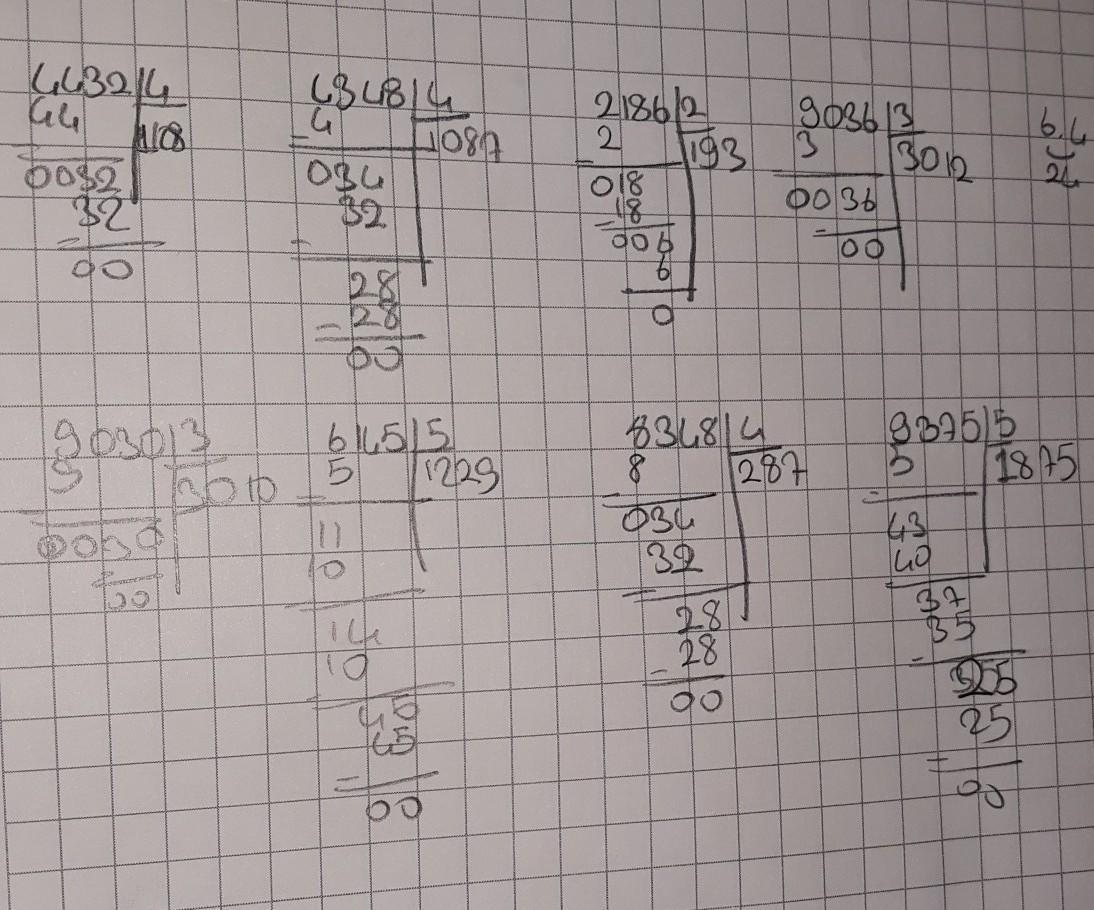 4432 4
44 1108
0032
32
00
4348 4
4 1087
034
32
28
28
00
2186 2
2 193
018
18
006
6
0
9036 3
3 3012
0036
00
6.4
24
9030 3
9 3010
0030
00
6145 5
5 1229
11
10
14
10
45
45
00
8348 4
8 287
034
32
28
28
00
9375 5
5 1875
43
40
37
35
25
25
00